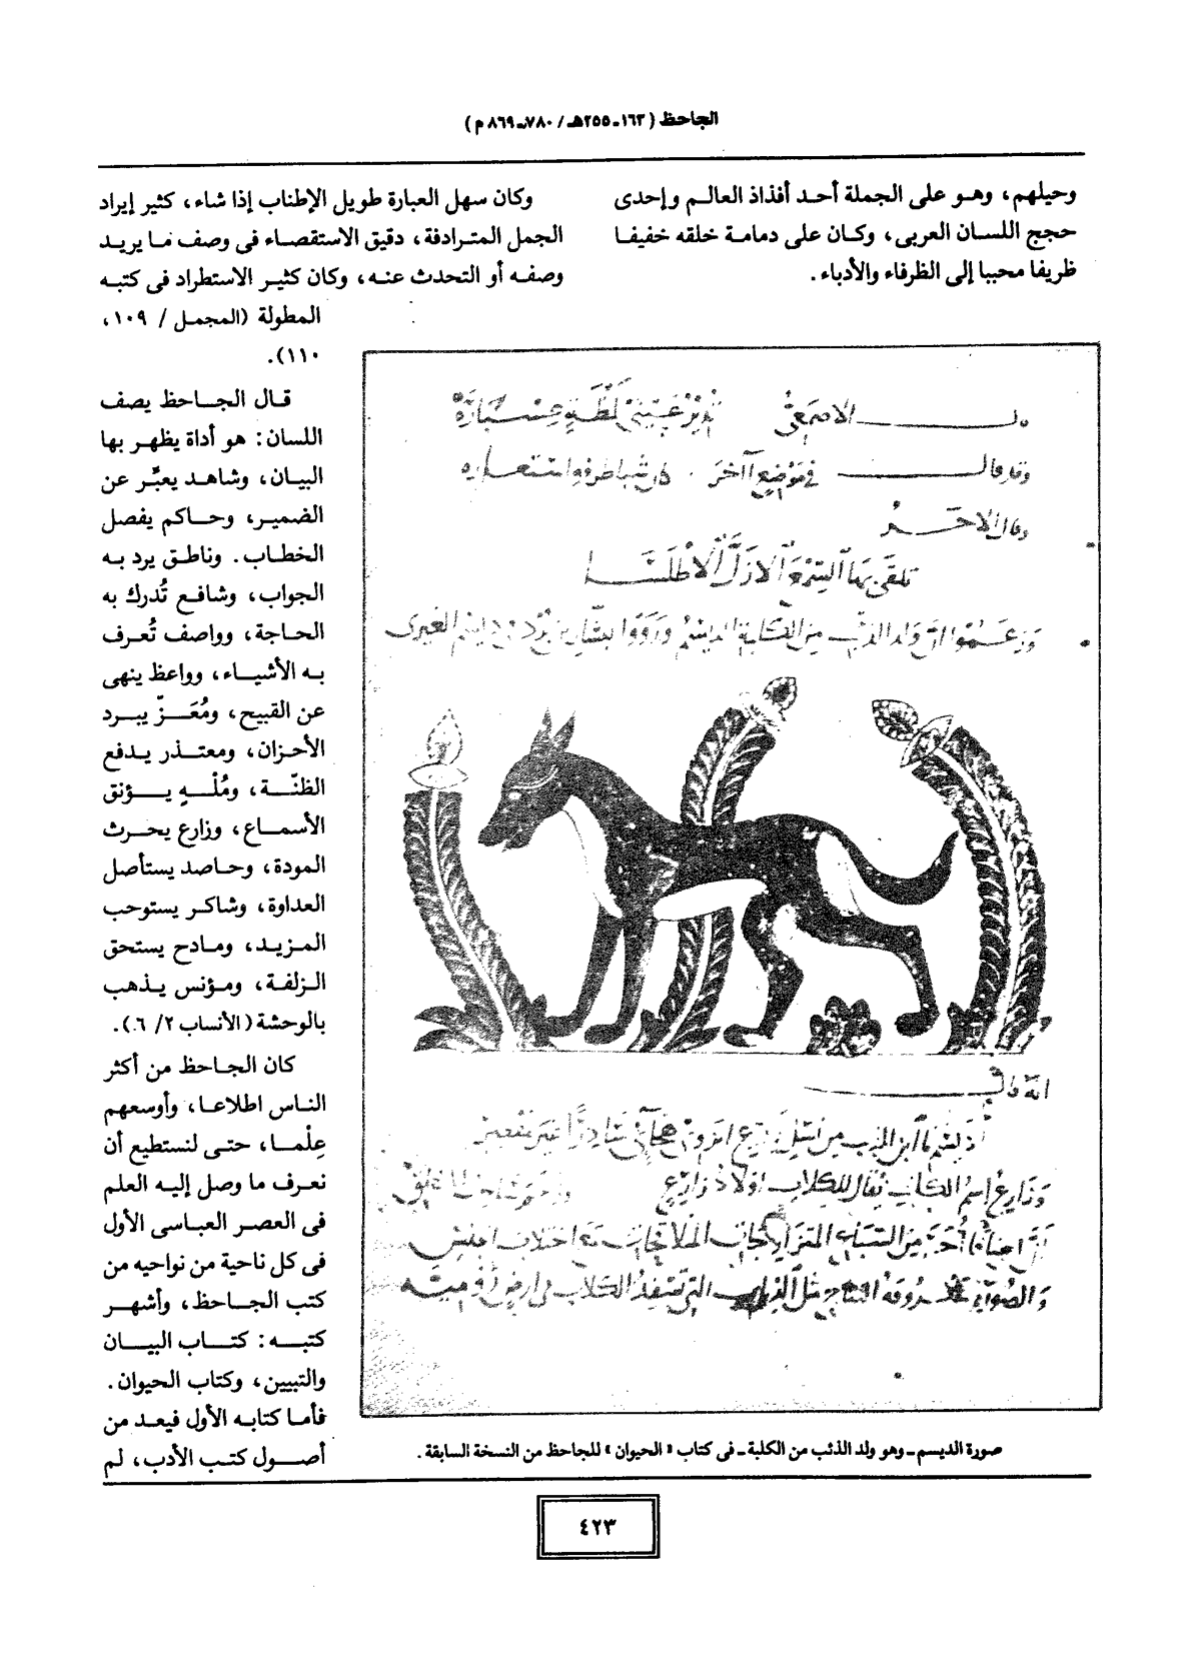 الجاحظ (١٦٣ـ٢٥٥هـ / ٧٨٠ـ٨٦٩ م)
وحيلهم، وهو على الجملة أحد أفذاذ العالم وإحدى
حجج اللسان العربى، وكان على دمامة خلقه خفيفا
ظريفا محببا إلى الظرفاء والأدباء.
وكان سهل العبارة طويل الإطناب إذا شاء، كثير إيراد
الجمل المترادفة، دقيق الاستقصاء فى وصف ما يريد
وصفه أو التحدث عنه، وكان كثير الاستطراد فى كتبه
المطولة (المجمل / ١٠٩،
١١٠).
قال الجاحظ يصف
اللسان: هو أداة يظهر بها
البيان، وشاهد يعبِّر عن
الضمير، وحاكم يفصل
الخطاب. وناطق يرد به
الجواب، وشافع تُدرك به
الحاجة، وواصف تُعرف
به الأشياء، وواعظ ينهى
عن القبيح، ومُعَزّ يبرد
الأحزان، ومعتذر يدفع
الظنّة، ومُلْهٍ يؤنق
الأسماع، وزارع يحرث
المودة، وحاصد يستأصل
العداوة، وشاكر يستوحب
المزيد، ومادح يستحق
الزلفة، ومؤنس يذهب
بالوحشة (الأنساب ٢/ ٦).
كان الجاحظ من أكثر
الناس اطلاعا، وأوسعهم
عِلْما، حتى لنستطيع أن
نعرف ما وصل إليه العلم
فى العصر العباسى الأول
فى كل ناحية من نواحيه من
كتب الجاحظ، وأشهر
كتبه: كتاب البيان
والتبيين، وكتاب الحيوان.
فأما كتابه الأول فيعد من
أصول كتب الأدب، لم
الاصمعى
وقد قال فى موضع آخر
وقال الاخر
تلقى بها السمع الازل الاطلسا
وزعموا ان ولد الذئب من الكلبة الديسم ورووا بشار بن برد
انه قال
وزارع اسم الكلب يقال للكلاب اولاد زارع
صورة الديسم ـ وهو ولد الذئب من الكلبة ـ فى كتاب «الحيوان» للجاحظ من النسخة السابقة.
٤٢٣